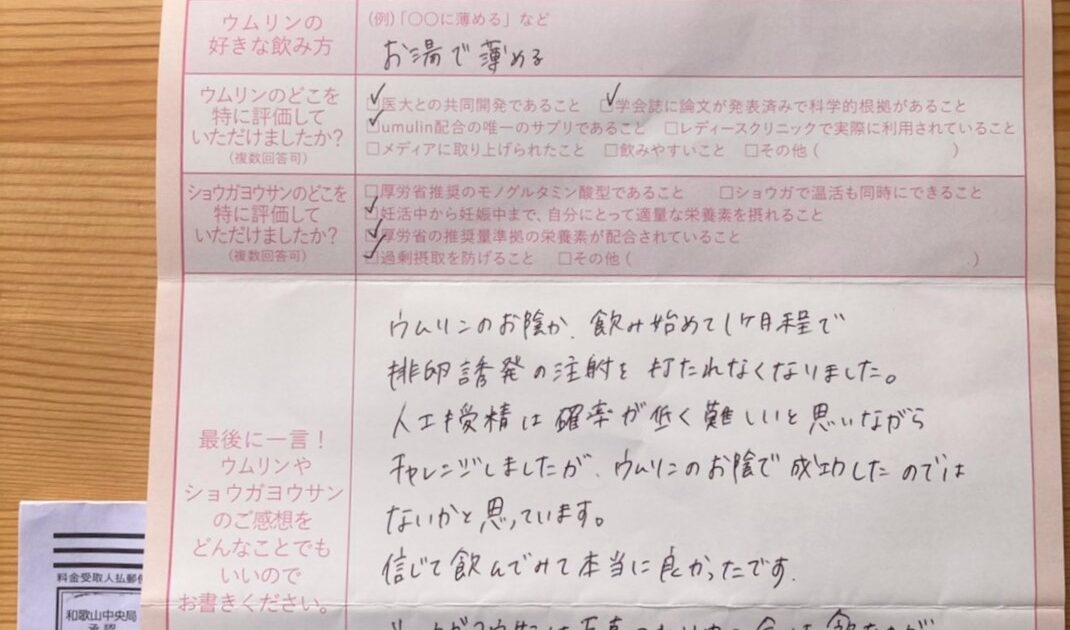 ウムリンの
好きな飲み方
(例)「○○に薄める」など
お湯で薄める
ウムリンのどこを
特に評価して
いただけましたか?
(複数回答可)
☑医大との共同開発であること ☑学会誌に論文が発表済みで科学的根拠があること
☑umulin配合の唯一のサプリであること □レディースクリニックで実際に利用されていること
□メディアに取り上げられたこと □飲みやすいこと □その他( )
ショウガヨウサンのどこを
特に評価して
いただけましたか?
(複数回答可)
□厚労省推奨のモノグルタミン酸型であること □ショウガで温活も同時にできること
☑妊活中から妊娠中まで、自分にとって適量な栄養素を摂れること
☑厚労省の推奨量準拠の栄養素が配合されていること
☑過剰摂取を防げること □その他( )
最後に一言!
ウムリンや
ショウガヨウサン
のご感想を
どんなことでも
いいので
お書きください。
ウムリンのお陰か、飲み始めて1ヶ月程で
排卵誘発の注射を打たれなくなりました。
人工授精は確率が低く難しいと思いながら
チャレンジしましたが、ウムリンのお陰で成功したのでは
ないかと思っています。
信じて飲んでみて本当に良かったです。
料金受取人払郵便
和歌山中央局
承認